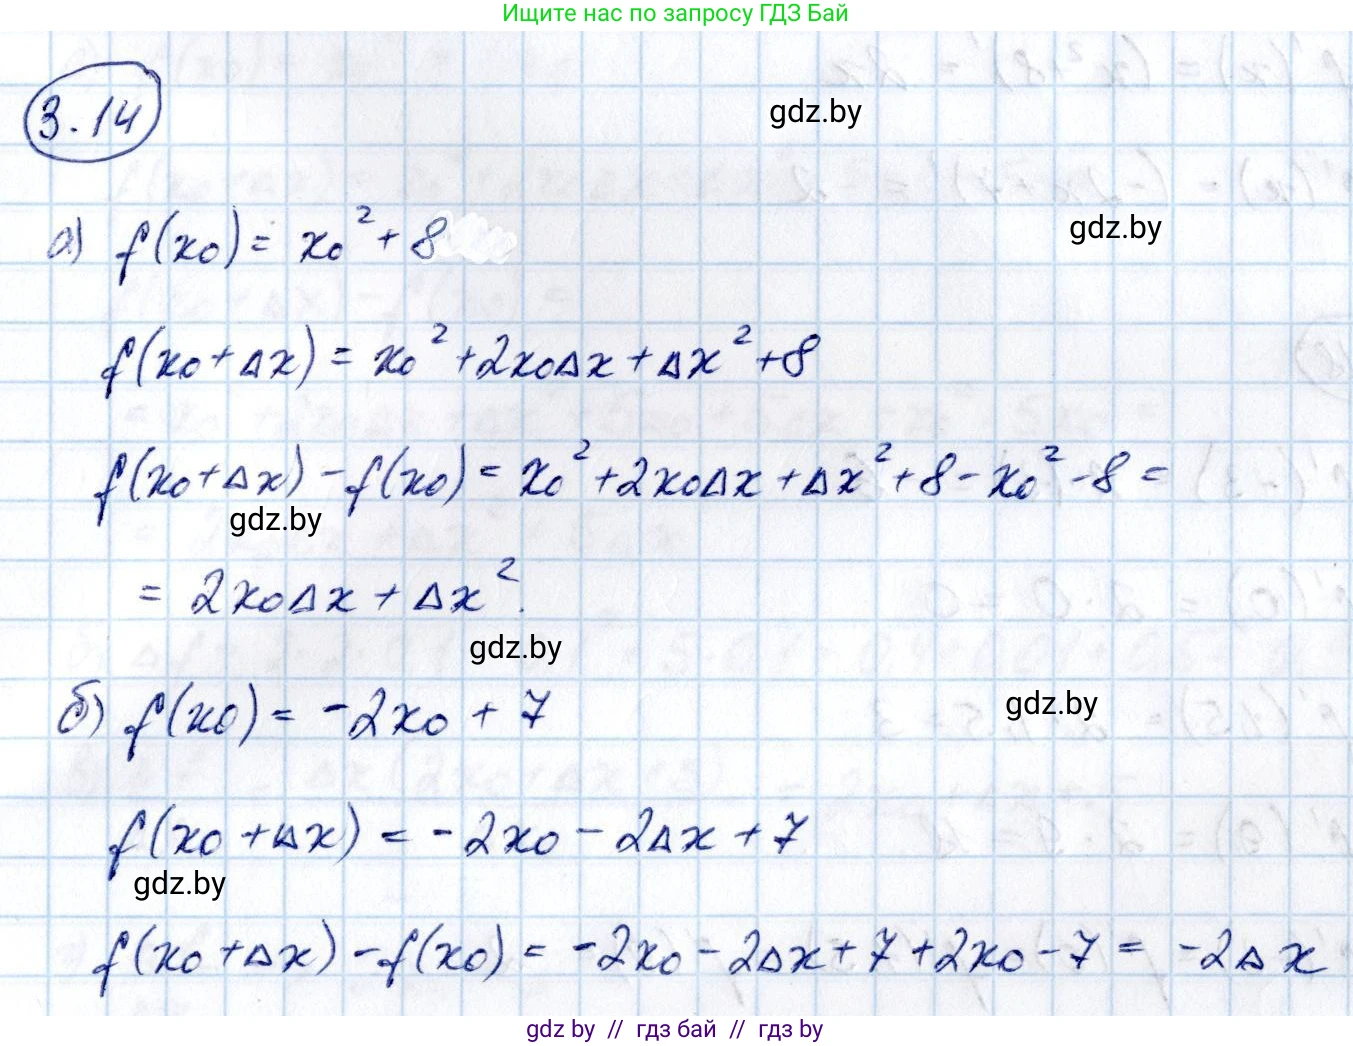 Ищите нас по запросу ГДЗ Бай
3.14
gdz.by
а) f(x₀) = x₀² + 8
gdz.by
f(x₀ + Δx) = x₀² + 2x₀Δx + Δx² + 8
f(x₀ + Δx) - f(x₀) = x₀² + 2x₀Δx + Δx² + 8 - x₀² - 8 =
gdz.by
= 2x₀Δx + Δx².
gdz.by
б) f(x₀) = -2x₀ + 7
gdz.by
f(x₀ + Δx) = -2x₀ - 2Δx + 7
gdz.by
f(x₀ + Δx) - f(x₀) = -2x₀ - 2Δx + 7 + 2x₀ - 7 = -2Δx
gdz by // гдз бай // гдз by